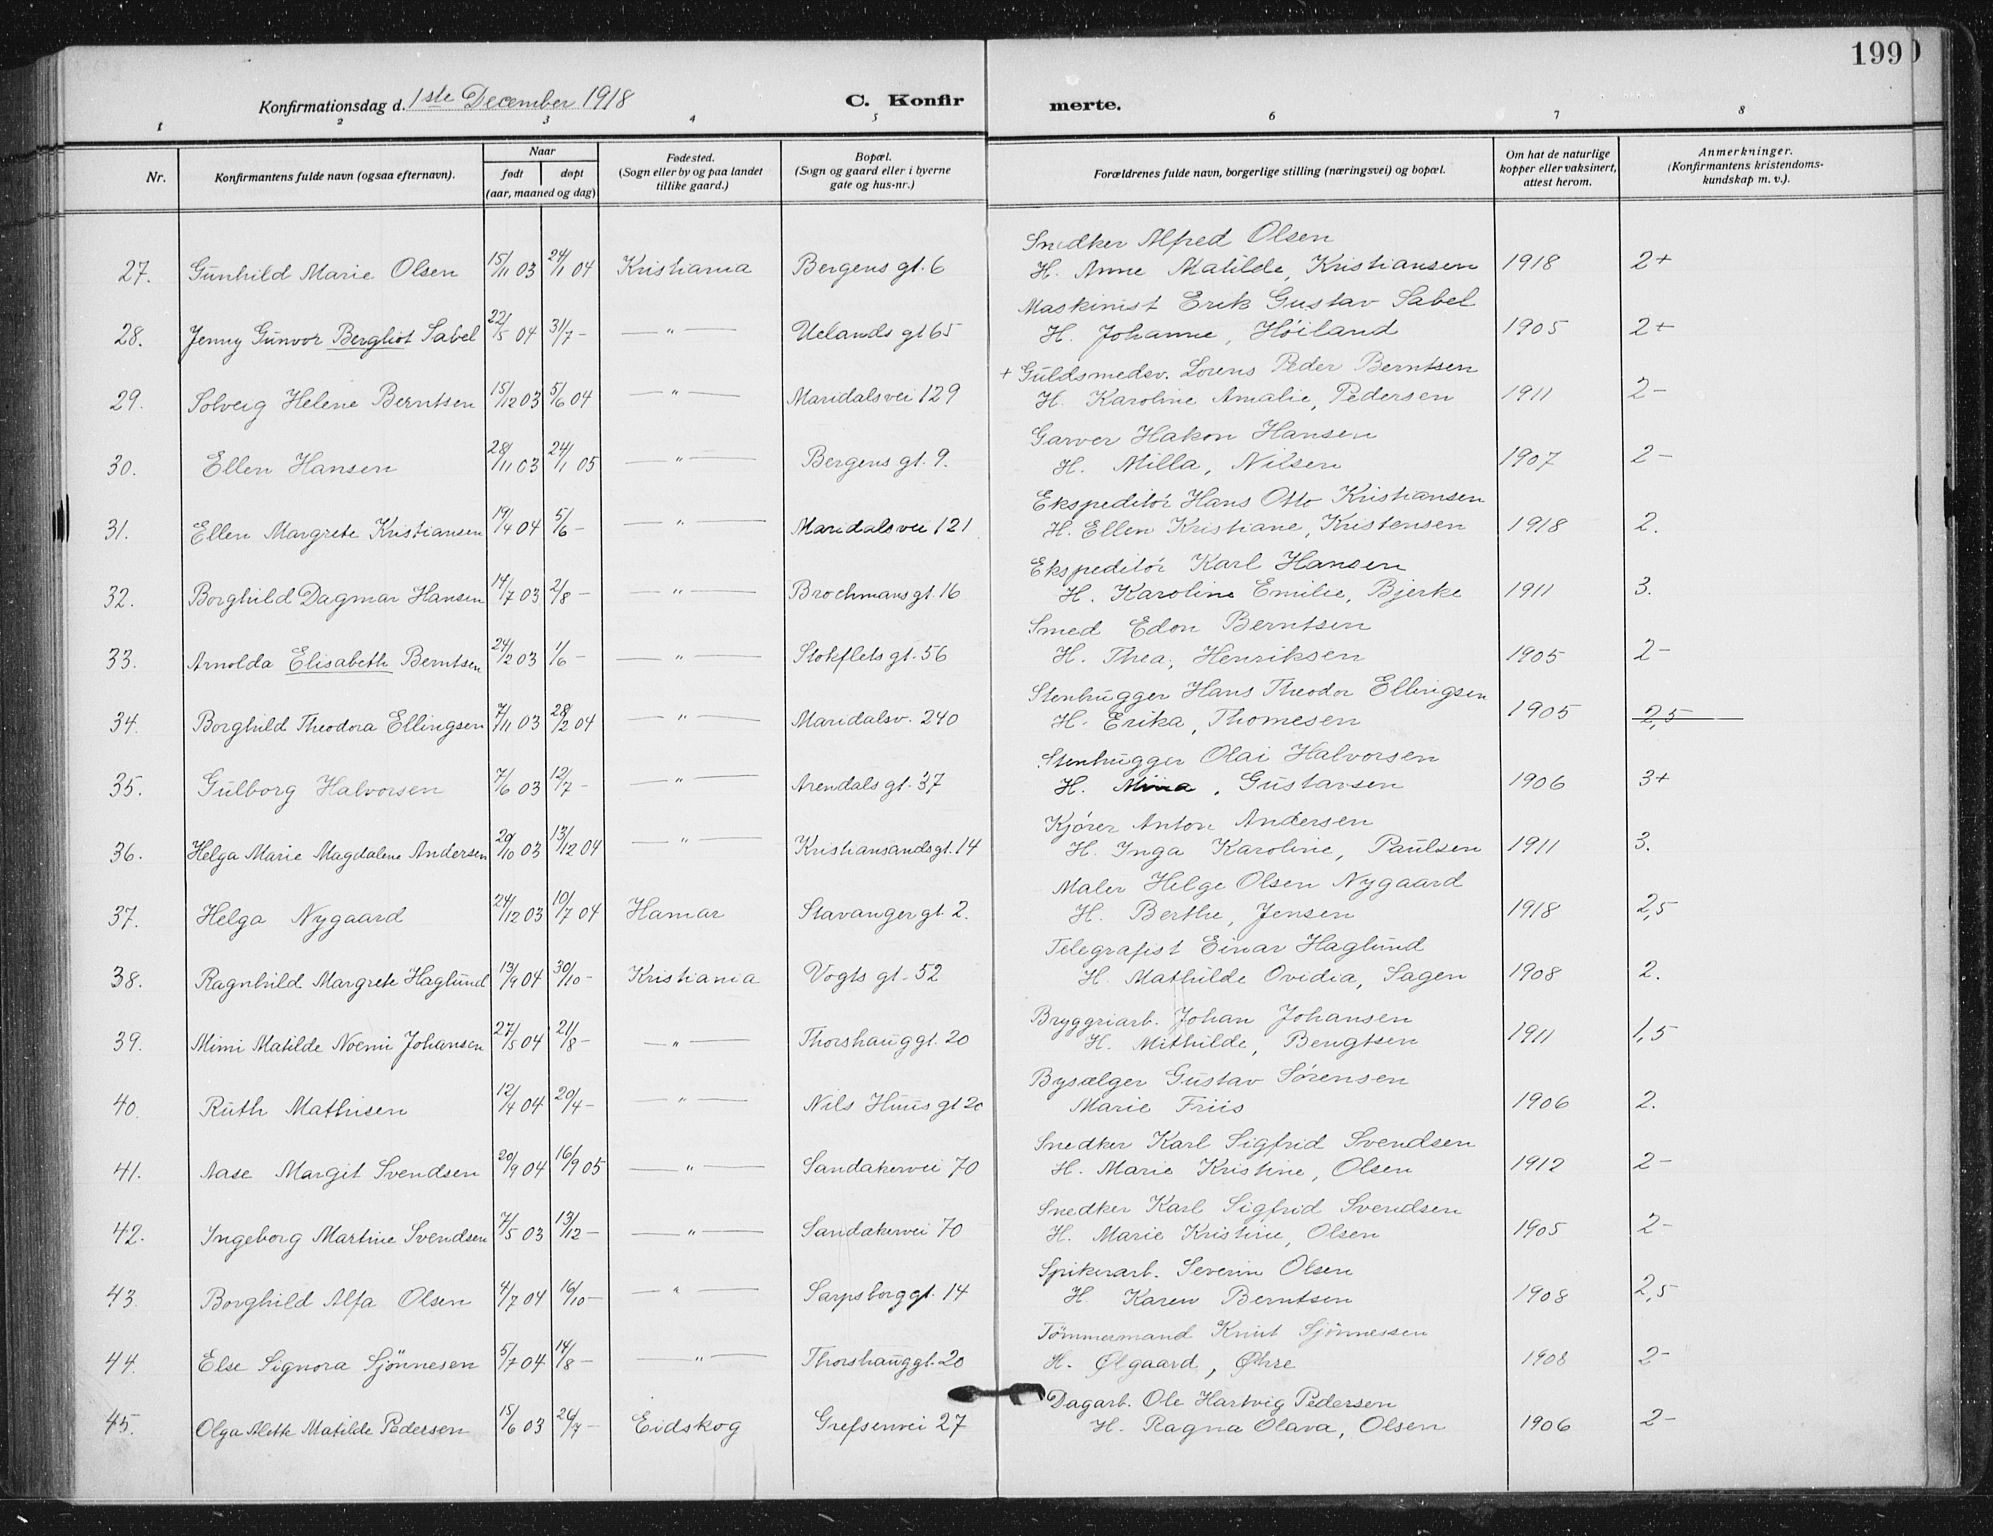 199
Konfirmationsdag d. 1ste December 1918 C. Konfir merte.
1 2 3 4 5 6 7 8
Nr. Konfirmantens fulde navn (ogsaa efternavn). Naar født døpt (aar, maaned og dag) Fødested. (Sogn eller by og paa landet tillike gaard.) Bopæl. (Sogn og gaard eller i byerne gate og hus-nr.) Forældrenes fulde navn, borgerlige stilling (næringsvei) og bopæl. Om hat de naturlige kopper eller vaksinert, attest herom. Anmerkninger. (Konfirmantens kristendoms-kundskap m. v.).
Snedker Alfred Olsen
27. Gunhild Marie Olsen 15/11 03 24/1 04 Kristiania Bergens gt. 6 H. Anne Matilde, Kristiansen 1918 2+
Maskinist Erik Gustav Sabel
28. Jenny Gunvor Bergliot Sabel 22/5 04 31/7 - — " — Uelands gt 65 H. Johanne, Høiland 1905 2+
+ Guldsmedsv. Lorens Peder Berntsen
29. Solveig Helene Berntsen 15/12 03 5/6 04 — " — Maridalsvei 129 H. Karoline Amalie, Pedersen 1911 2-
Garver Hakon Hansen
30. Ellen Hansen 28/11 03 24/1 05 — " — Bergens gt. 9. H. Milla, Nilsen 1907 2-
Ekspeditör Hans Otto Kristiansen
31. Ellen Margrete Kristiansen 19/4 04 5/6 - — " — Maridalsvei 121 H. Ellen Kristiane, Kristensen 1918 2.
Ekspeditör Karl Hansen
32. Borghild Dagmar Hansen 14/7 03 2/8 - — " — Brochmans gt. 16 H. Karoline Emilie, Bjerke 1911 3.
Smed Edon Berntsen
33. Arnolda Elisabeth Berntsen 24/2 03 1/6 - — " — Stokflets gt. 56 H. Thea, Henriksen 1905 2-
Stenhugger Hans Theodor Ellingsen
34. Borghild Theodora Ellingsen 7/11 03 28/2 04 — " — Maridalsv. 240 H. Erika, Thomesen 1905 2,5
Stenhugger Olai Halvorsen
35. Gulborg Halvorsen 7/6 03 12/7 - — " — Arendals gt. 37 H. Mina, Gustavsen 1906 3+
Kjører Anton Andersen
36. Helga Marie Magdalene Andersen 20/10 03 13/12 04 — " — Kristiansands gt. 14 H. Inga Karoline, Paulsen 1911 3.
Maler Helge Olsen Nygaard
37. Helga Nygaard 24/12 03 10/7 04 Hamar Stavanger gt. 2. H. Berthe, Jensen 1918 2,5
Telegrafist Einar Haglund
38. Ragnhild Margrete Haglund 13/9 04 30/10 - Kristiania Vogts gt. 52 H. Mathilde Ovidia, Sagen 1908 2.
Bryggriarb. Johan Johansen
39. Mimi Matilde Noemi Johansen 27/5 04 21/8 - — " — Thorshauggt. 20 H. Mithilde, Bengtsen 1911 1,5
Bysælger Gustav Sørensen
40. Ruth Mathisen 12/4 04 20/4 - — " — Nils Huus gt 20 Marie Friis 1906 2.
Snedker Karl Sigfrid Svendsen
41. Aase Margit Svendsen 20/9 04 16/9 05 — " — Sandakervei 70 H. Marie Kristine, Olsen 1912 2-
Snedker Karl Sigfrid Svendsen
42. Ingeborg Martine Svendsen 7/5 03 13/12 - — " — Sandakervei 70 H. Marie Kristine, Olsen 1905 2-
Spikerarb. Severin Olsen
43. Borghild Alfa Olsen 4/7 04 16/10 - — " — Sarpsborg gt. 14 H Karen Berntsen 1908 2,5
Tömmermand Knut Sjönnessen
44. Else Signora Sjönnesen 5/7 04 14/8 - — " — Thorshauggt. 20 H. Ølgaard, Øhre 1908 2-
Dagarb. Ole Hartvig Pedersen
45. Olga Alette Matilde Pedersen 15/6 03 26/7 - Eidskog Grefsenvei 27 H. Ragna Olava, Olsen 1906 2-